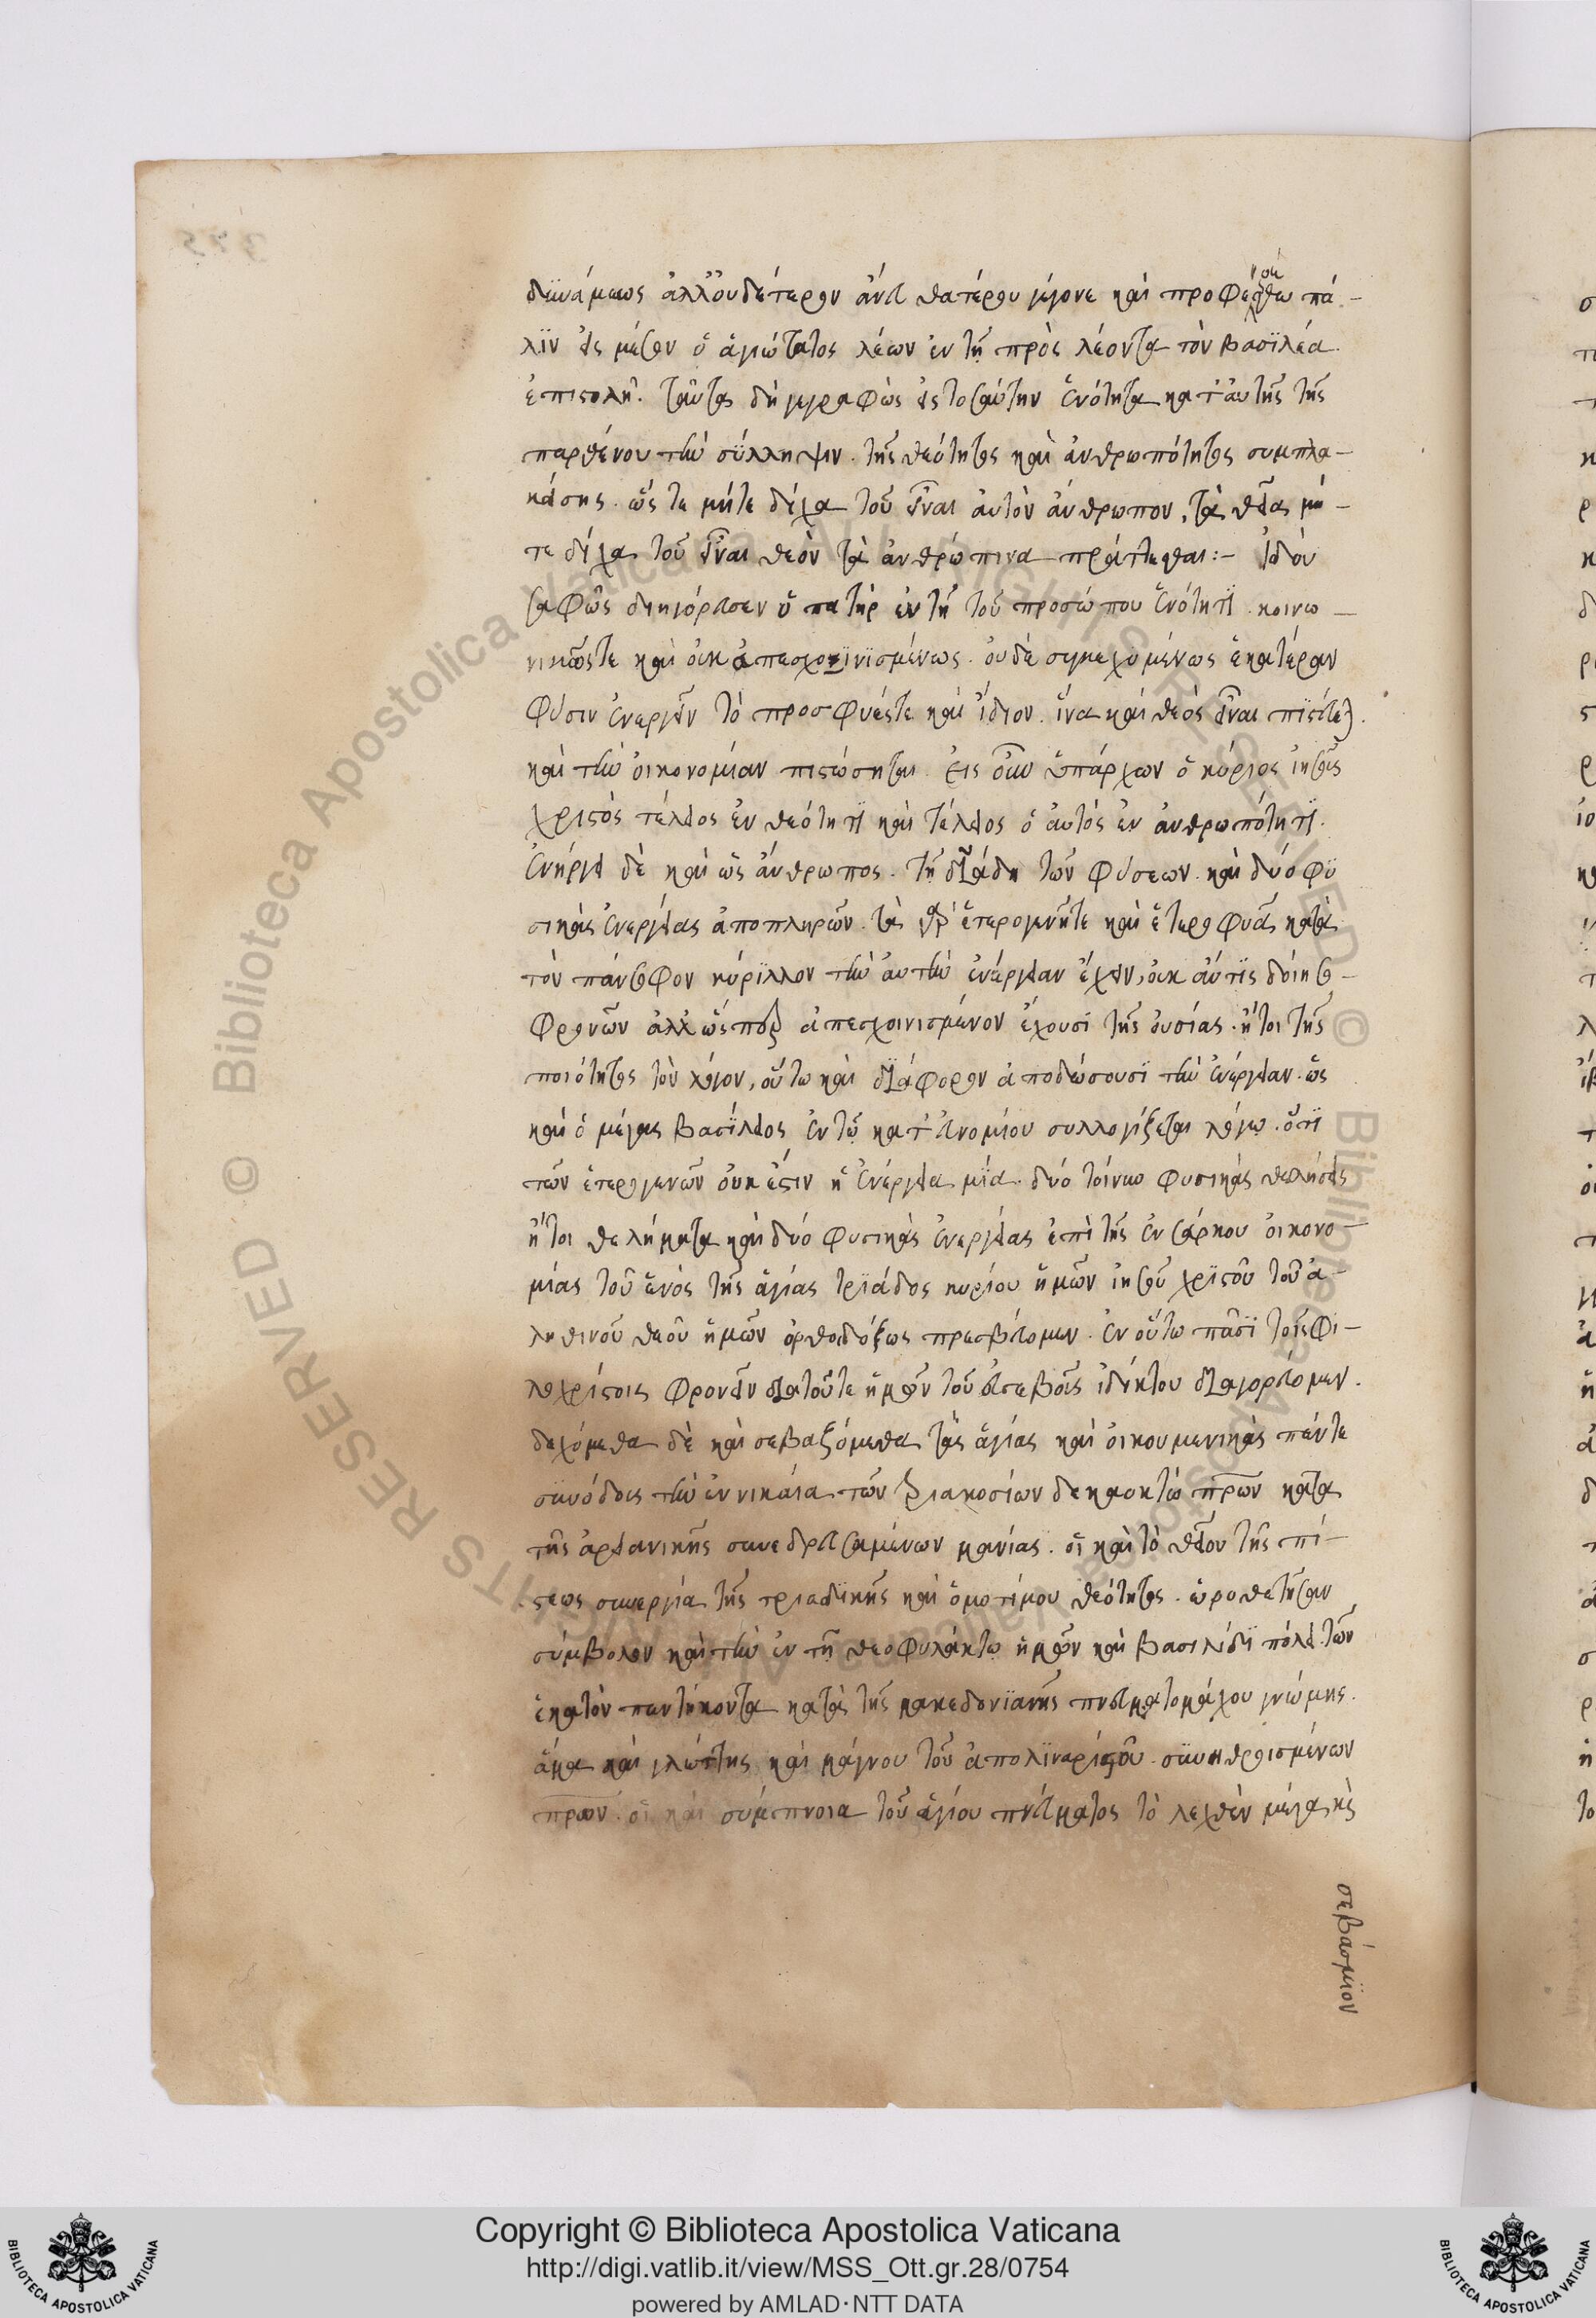 δϋνάμεως ἀλλ' οὐδέτερον ἄνευ θατέρου γέγονε καὶ προφερέσθω πά-
λϊν εἰς μέσον ὁ ἁγιώτατος λέων ἐν τῇ πρὸς λέοντα τὸν βασϊλέα
ἐπιστολῆ. ταῦτα δὴ γεγραφὼς εἰς τοσαύτην ἑνότητα κατ' αὐτῆς τῆς
παρθένου τὴν σϋλληψιν. τῆς θεότητος καὶ ἀνθρωπότητος συμπλα-
κείσης. ὥς τε μήτε δίχα τοῦ εἶναι αὐτὸν ἄνθρωπον, τὰ θεῖα μή-
τε δίχα τοῦ εἶναι θεὸν τὰ ἀνθρώπινα πράττεσθαι:- ἰδοὺ
σαφῶς διηγόρευσεν ὁ πατὴρ ἐν τῇ τοῦ προσώπου ἑνότητϊ. κοινω-
νικῶςτε καὶ οὐκ ἀπεσχοινϊσμένως. οὐδὲ συγκεχυμένως ἑκατέραν
φύσιν ἐνεργεῖν τὸ προσφυέςτε καὶ ἴδιον. ἵνα καὶ θεὸς εἶναι πϊστεύεται.
καὶ τὴν οἰκονομίαν πιστώσηται. εἷς οὖν ὑπάρχων ὁ κύριος ἰησοῦς
χριστὸς τέλειος ἐν θεότητϊ καὶ τέλειος ὁ αὐτὸς ἐν ἀνθρωπότητϊ.
ἐνήργει δὲ καὶ ὡς ἄνθρωπος. τῇ δυάδη τῶν φύσεων. καὶ δύο φϋ
σικὰς ἐνεργείας ἀποπληρῶν. τὰ γὰρ ἑτερογενῆτε καὶ ἑτεροφυᾶ κατὰ
τὸν πάνσοφον κύρϊλλον τὴν αὐτὴν ἐνέργειαν ἔχειν, οὐκ ἄντις δοίη σ-
φρονῶν ἀλλ' ὥσπερ ἀπεσχοινισμένον ἔχουσϊ τῆς οὐσίας. ἤτοι τῆς
ποιότητος τὸν λόγον, οὕτω καὶ διάφορον ἀποδώσουσϊ τὴν ἐνέργειαν. ὡς
καὶ ὁ μέγας βασϊλειος ἐν τῷ κατ' εὐνομίου συλλογίζεται λόγω. ὅτϊ
τῶν ἑτερογενῶν οὐκ ἔστιν ἡ ἐνέργεια μϊα. δύο τοίνυν φυσικὰς θελήσεις
ἤτοι θελήματα καὶ δύο φυσικὰς ἐνεργείας ἐπὶ τῆς ἐνσάρκου οἰκονο-
μίας τοῦ ἑνὸς τῆς ἁγίας τρϊάδος κυρίου ἡμῶν ἰησοῦ χρϊστοῦ τοῦ ἀ-
ληθινοῦ θεοῦ ἡμῶν ὀρθοδόξως πρεσβεύομεν. ἐν οὕτω πᾶσϊ τοῖς φι-
λοχρίστοις φρονεῖν διατοῦτε ἡμῶν τοῦ εὐσεβοῦς ἰδίκτου διαγορεύομεν.
δεχόμεθα δὲ καὶ σεβαζόμεθα τὰς ἁγίας καὶ οἰκουμενικὰς πέντε
σϋνόδους τὴν ἐν νικαία τῶν τριακοσίων δεκαοκτὼ πρων κατὰ
τῆς ἀρειανικῆς συνεδρευσαμένων μανίας. οἳ καὶ τὸ θεῖον τῆς πί-
στεως συνεργία τῆς τριαδϊκῆς καὶ ὁμοτίμου θεότητος. ὡροθετῆσαν
σύμβολον καὶ τὴν ἐν τῇ θεοφυλάκτω ἡμῶν καὶ βασιλίδϊ πόλει τῶν
ἑκατὸν πεντήκοντα κατὰ τῆς μακεδονϊανῆς πνευματομάχου γνώμης.
ἅμα καὶ γλώττης καὶ μάγνου τοῦ ἀπολϊναρίστοῦ. σϋνηθροισμένων
πρων. οἳ καὶ συμπνοια τοῦ ἁγίου πνεύματος τὸ λεχθὲν μέγα καὶ
σεβάσμϊον